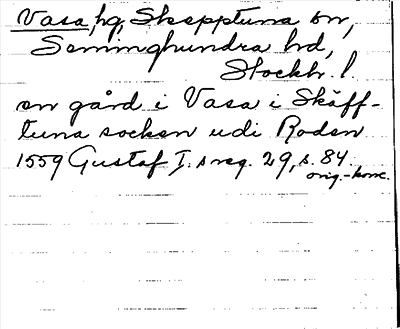 Vasa, hg, Skepptuna sn,
Seminghundra hd,
Stockh. l.
en gård i Vasa i Skäff-
tuna socken udi Roden
1559 Gustaf I:s reg. 29, s. 84.
orig.-konc.